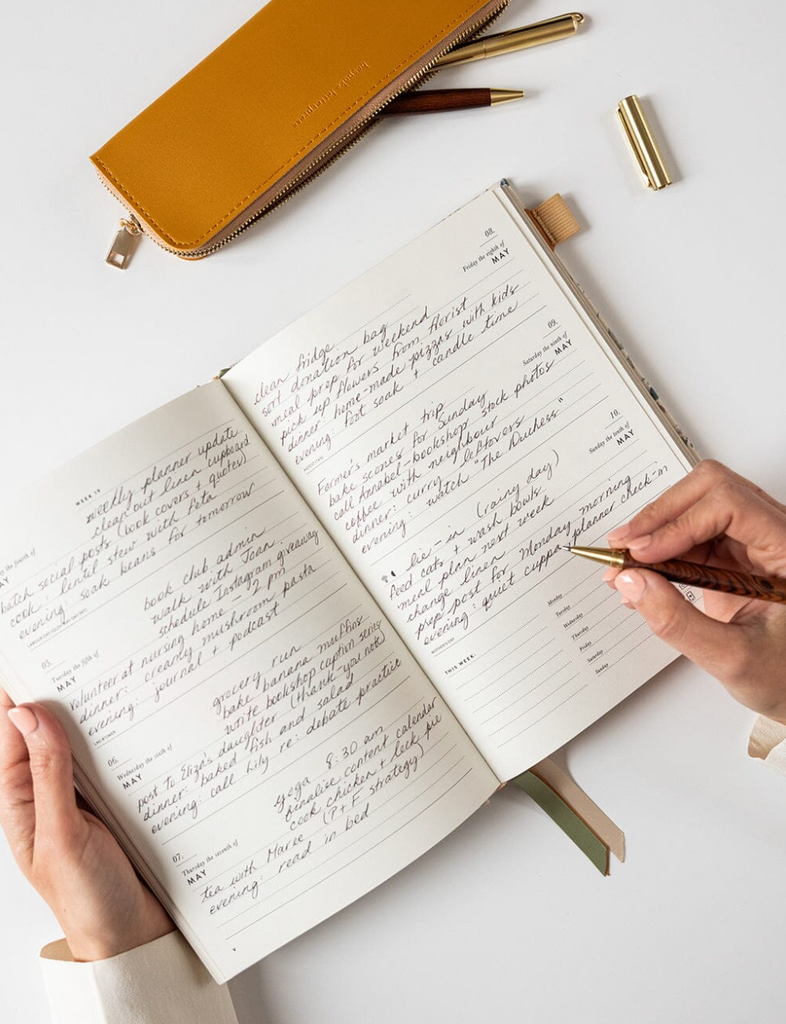 bespoke letterpress
WEEK 19
weekly planner update
clean out linen cupboard
batch social posts (book covers + quotes)
cook: lentil stew with feta
evening: soak beans for tomorrow
the fourth of
MAY
book club admin
walk with Joan
schedule Instagram giveaway
volunteer at nursing home - 2 pm
dinner: creamy mushroom pasta
evening: journal + podcast
05.
Tuesday the fifth of
MAY
grocery run
bake banana muffins
write bookshop caption series
post to Eliza's daughter (thank-you note)
dinner: baked fish and salad
evening: call Lily re: debate practice
06.
Wednesday the sixth of
MAY
yoga 8:30 am
finalise content calendar
cook chicken + leek pie
tea with Maree (P+F strategy)
evening: read in bed
07.
Thursday the seventh of
MAY
08.
Friday the eighth of
MAY
clean fridge
sort donation bag
meal prep for weekend
pick up flowers from florist
dinner: home-made pizzas with kids
evening: foot soak + candle time
09.
Saturday the ninth of
MAY
Farmer's market trip
bake scones for Sunday
call Annabel - bookshop stock photos
coffee with neighbour
dinner: curry / leftovers
evening: watch "The Duchess"
10.
Sunday the tenth of
MAY
lie-in (rainy day)
feed cats + wash bowls
meal plan next week
change linen
prep post for Monday morning
evening: quiet cuppa + planner check-in
MOTHER'S DAY
THIS WEEK:
Monday
Tuesday
Wednesday
Thursday
Friday
Saturday
Sunday